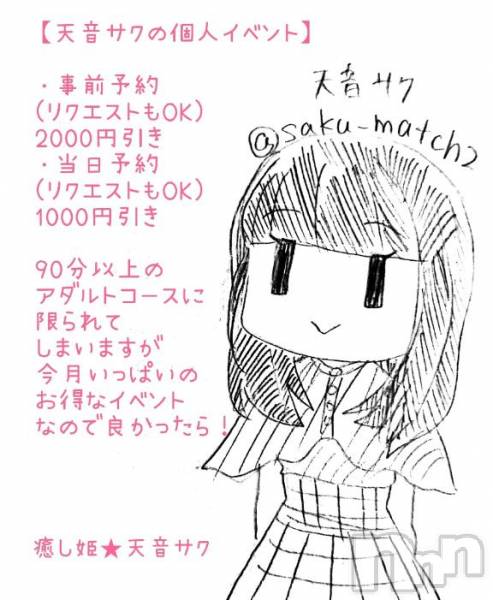 【天音サクの個人イベント】
・事前予約
(リクエストもOK)
2000円引き
・当日予約
(リクエストもOK)
1000円引き
90分以上の
アダルトコースに
限られて
しまいますが
今月いっぱいの
お得なイベント
なので良かったら！
癒し姫★天音サク
天音サク
@saku_match2